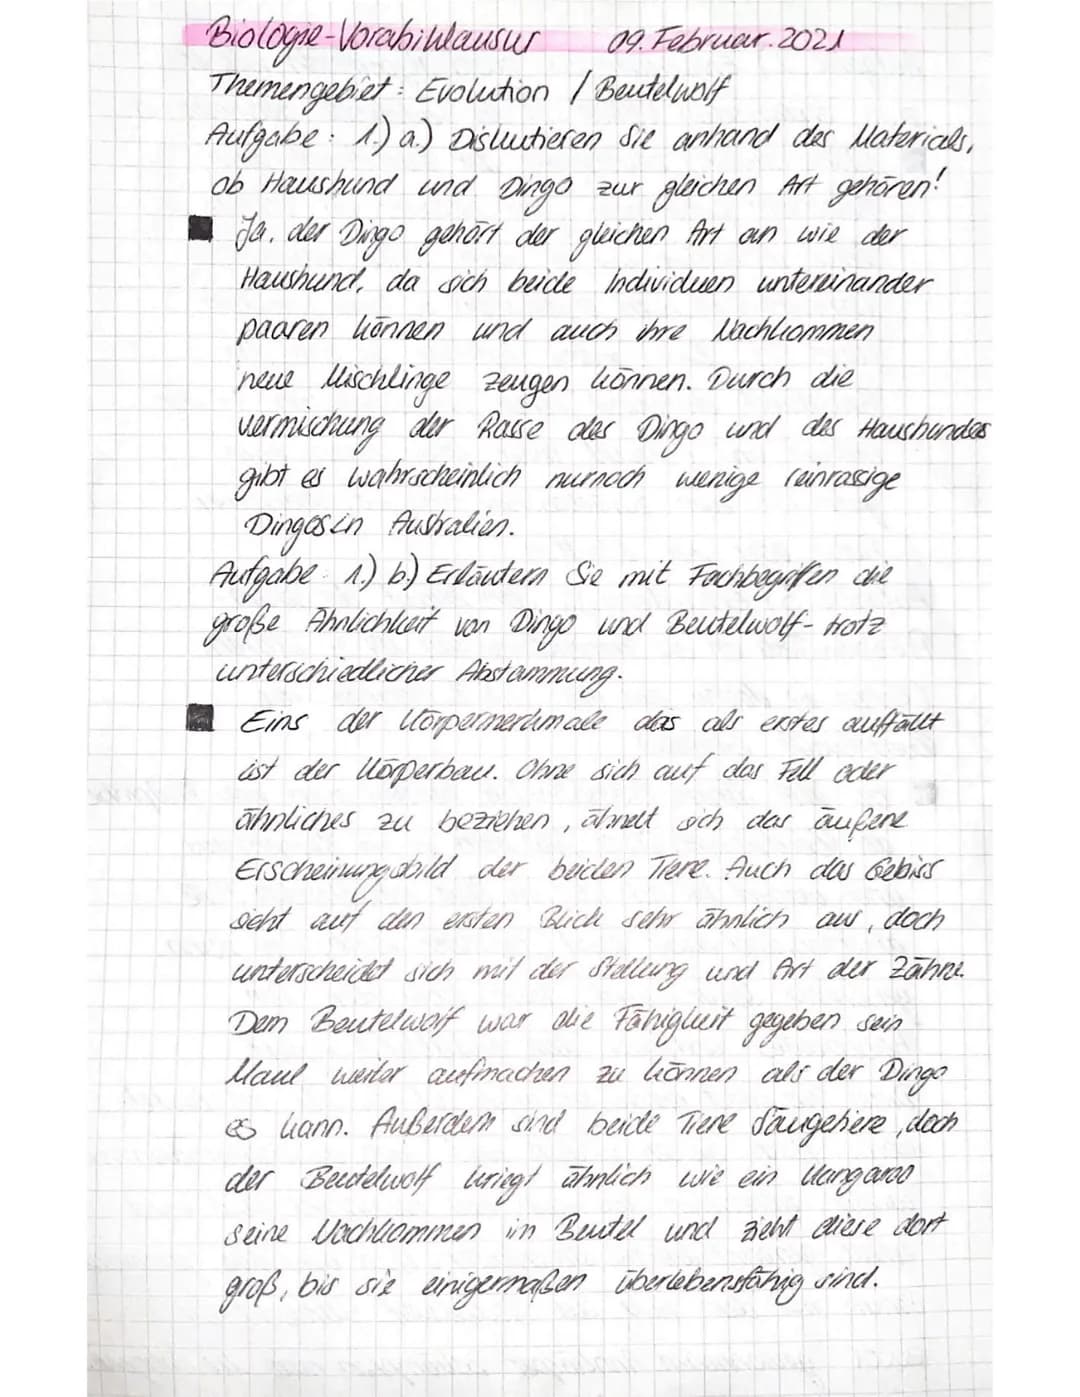 Biologie-Vorabiklausur 09. Februar. 2021
Themengebiet: Evolution / Beutelwolf
Aufgabe: 1.) a.) Diskutieren Sie anhand des Materials,
ob Haushund und Dingo zur gleichen Art gehören!
Ja, der Dingo gehört der gleichen Art an wie der
Haushund, da sich beide Individuen untereinander
paaren können und auch ihre Nachkommen
neue Mischlinge zeugen können. Durch die
vermischung der Rasse des Dingo und des Haushundes
gibt es wahrscheinlich nurnoch wenige reinrassige
Dingos in Australien.
Aufgabe 1.) b.) Erläutern Sie mit Fachbegriffen die
große Ähnlichkeit von Dingo und Beutelwolf- trotz
unterschiedlicher Abstammung.
Eins der Körpermerkmale das als erstes auffällt
ist der Körperbau. Ohne sich auf das Fell oder
ähnliches zu beziehen, ähnelt sich das äußere
Erscheinungsbild der beiden Tiere. Auch das Gebiss
sieht auf den ersten Blick sehr ähnlich aus, doch
unterscheidet sich mit der Stellung und Art der Zähne.
Dem Beutelwolf war die Fähigkeit gegeben sein
Maul weiter aufmachen zu können als der Dingo
es kann. Außerdem sind beide Tiere Säugetiere, doch
der Beutelwolf kriegt ähnlich wie ein Kangaroo
seine Nachkommen im Beutel und zieht diese dort
groß, bis sie einigermaßen überlebensfähig sind.